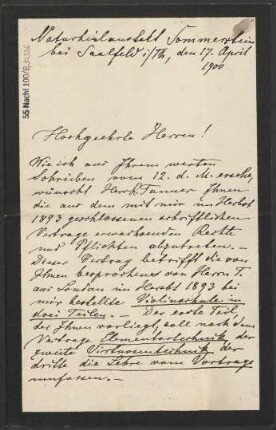 Naturheilanstalt Sommerstein
bei Saalfeld i/Th, den 17. April
1900
55 Nachl 100/B
Hochgeehrte Herren!
Wie ich aus Ihrem werten
Schreiben vom 12. d. M. ersehe,
wünscht Herr Tanner Ihnen
die aus dem mit mir im Herbst
1893 geschlossenen schriftlichen
Vertrage erwachsenden Rechte
und Pflichten abzutreten. —
Dieser Vertrag betrifft die von
Ihnen besprochene von Herrn T.
aus London im Herbst 1893 bei
mir bestellte Violinschule in
drei Teilen. — Der erste Teil,
der Ihnen vorliegt, soll nach dem
Vertrage Elementartechnik, der
zweite Virtuosentechnik, der
dritte die Lehre vom Vortrage
umfassen. —